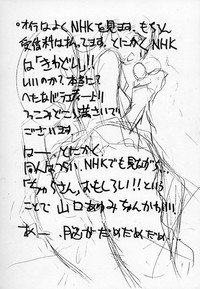 オイラはよくNHKを見ます。もちろん
受信料は払ってます。とにかくNHK
は「きわどい」!!
いいのかて本当にて
へたなバラエティーより
つっこみどころ満さいで
ございます。
はーー。とにかく
なんぱつかい、NHKでも見ながら…
「ちゅらさん、おもしろい!!」という
ことで 山口あゆみなんかも!!!
あー 、脳がだめだめだめ…